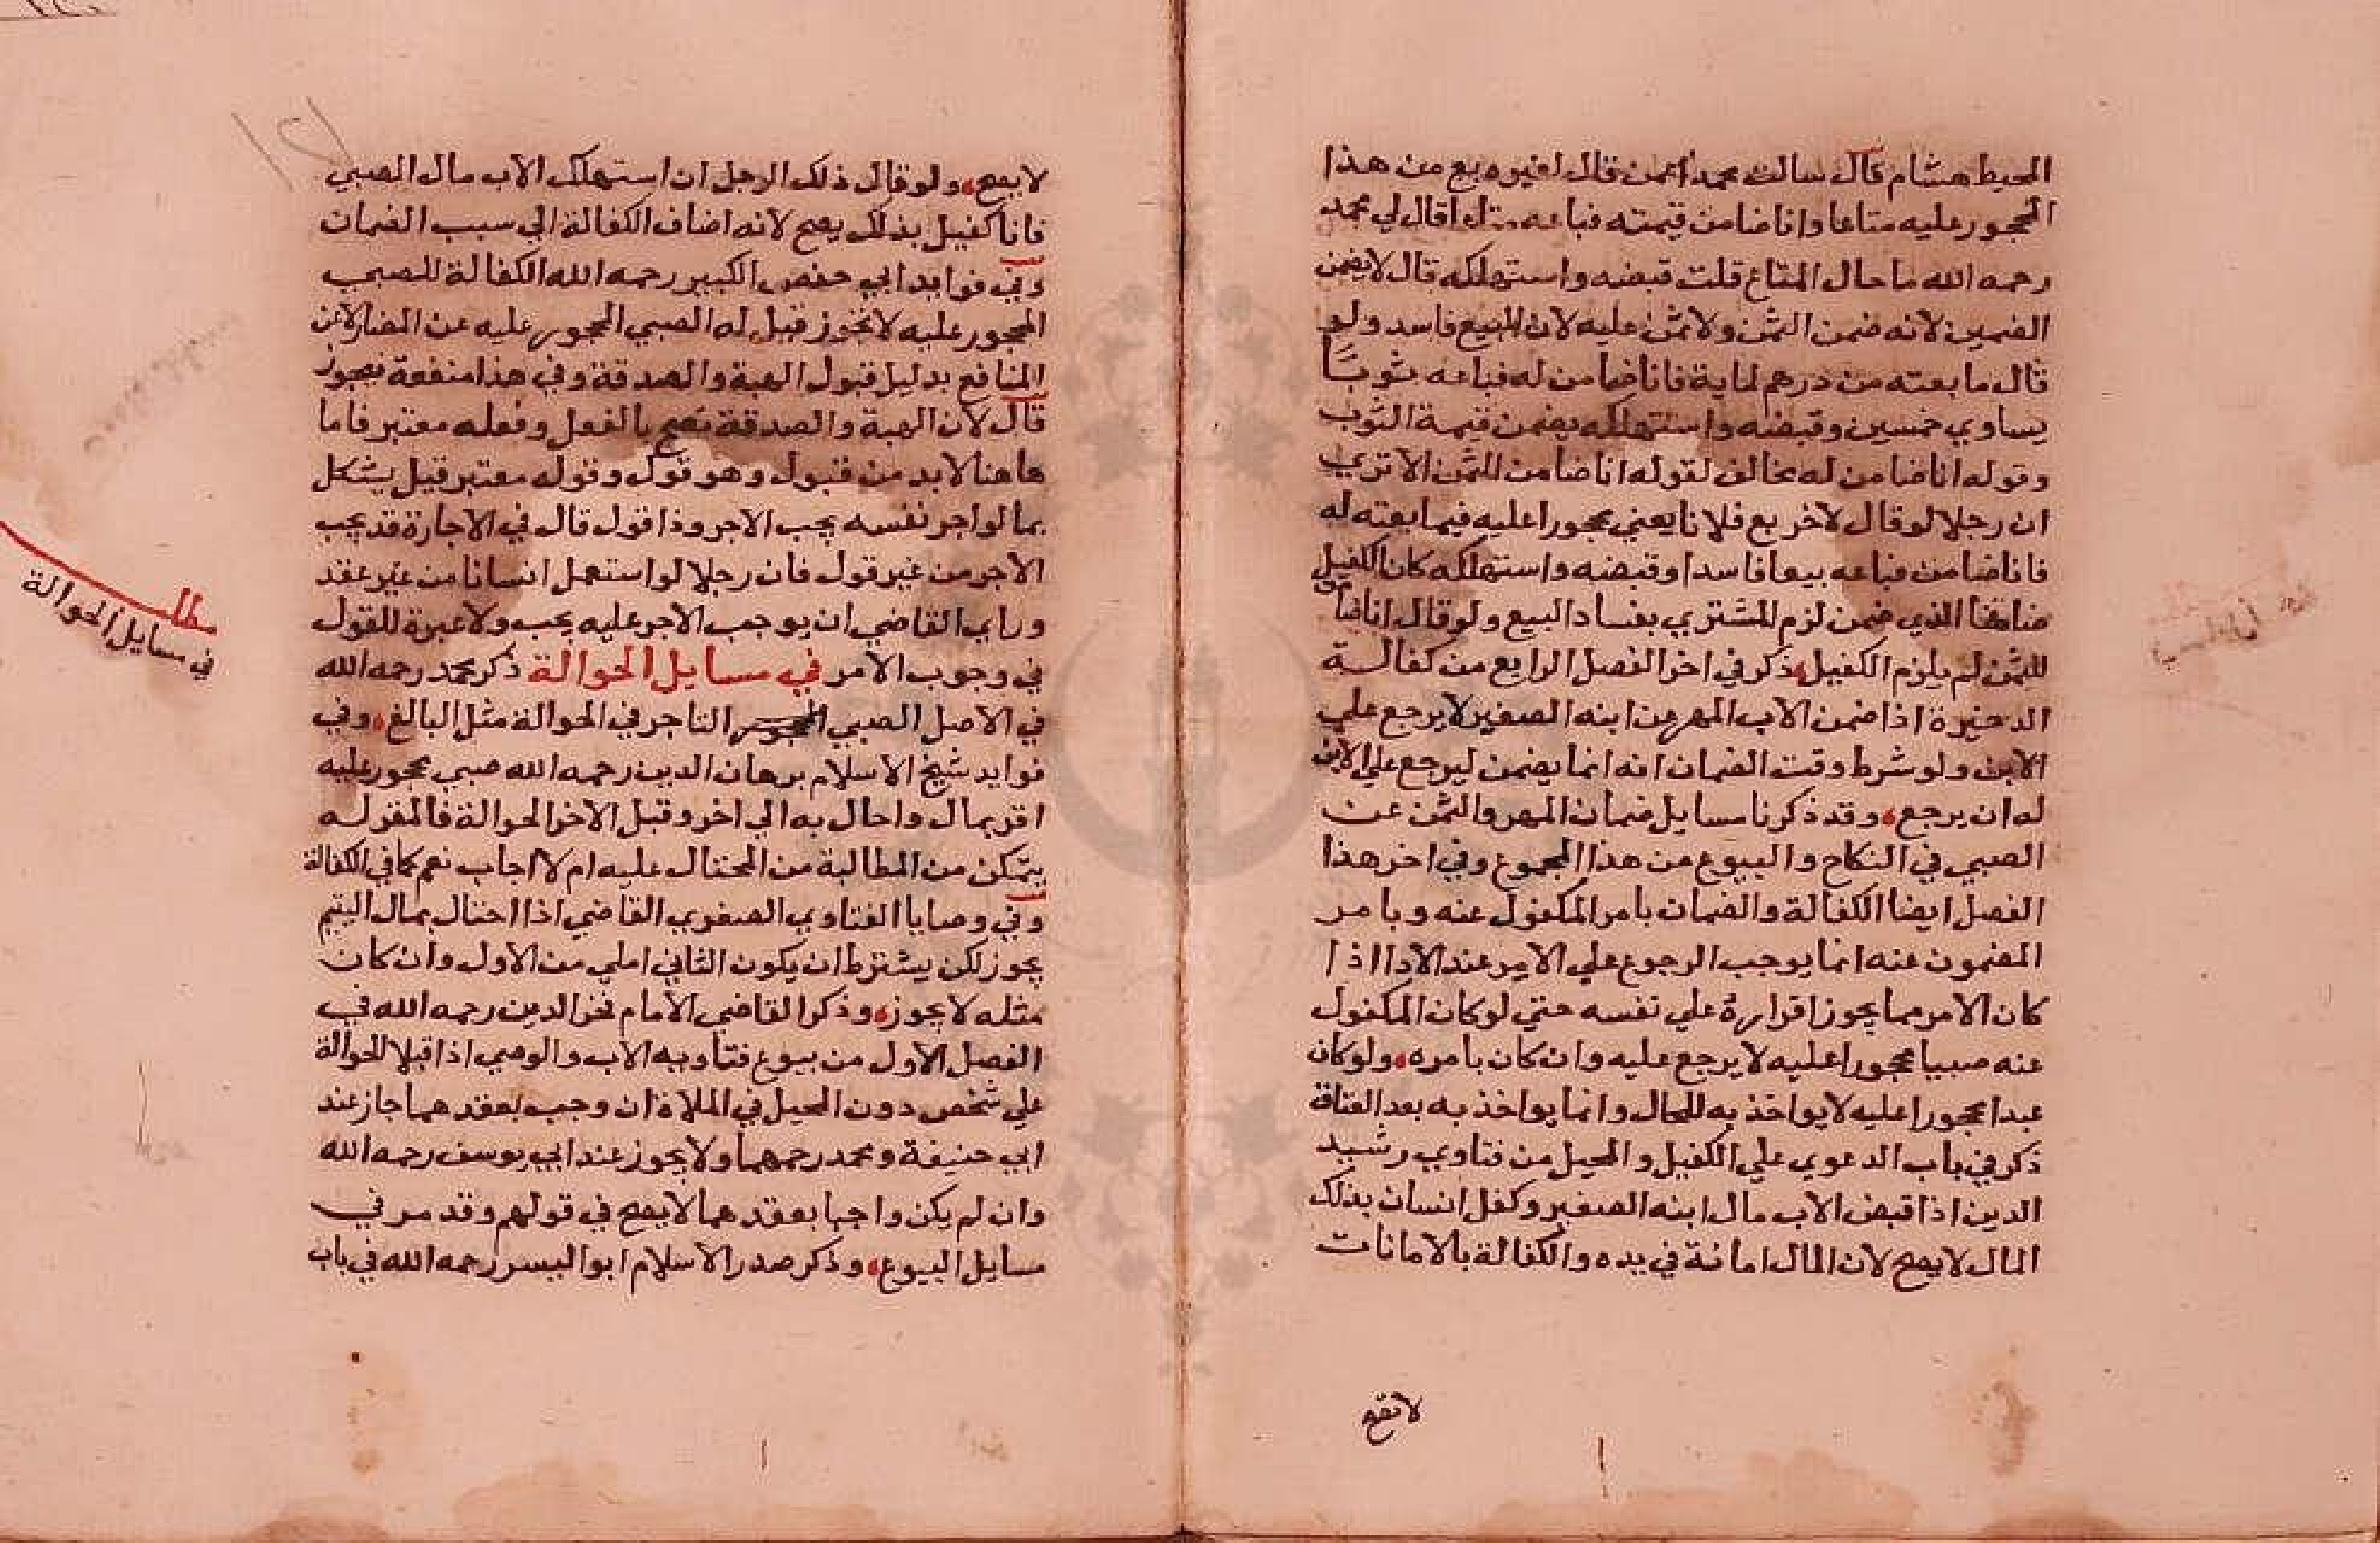 المحيط هشام قال سالت محمدا عمن قال لغيره بع من هذا
المحجور عليه متاعا وانا ضامن قيمته فباعه متاعا قال لي محمد
رحمه الله ما حال المتاع قلت قبضه واستهلكه قال لا يضمن
الضمين لانه ضمن الثمن ولا ثمن عليه لان البيع فاسد ولو
قال ما بعته من درهم لماية فانا ضامن له فباعه ثوبا
يساوي خمسين وقبضه واستهلكه يضمن قيمة الثوب
وقوله انا ضامن له مخالف لقوله انا ضامن للثمن الا تري
ان رجلا لو قال لاخر بع فلانا يعني محجورا عليه فيما بعته له
فانا ضامن فباعه بيعا فاسدا وقبضه واستهلكه كان الكفيل
ضامنا الذي ضمن لزم المشتري بفساد البيع ولو قال انا ضامن
للثمن لم يلزم الكفيل ذكر في اخر الفصل الرابع من كفالة
الدخيرة اذا ضمن الاب المهر عن ابنه الصغير لا يرجع علي
الابن ولو شرط وقت الضمان انه انما يضمن ليرجع علي الابن
له ان يرجع وقد ذكرنا مسايل ضمان المهر والثمن عن
الصبي في النكاح والبيوع من هذا المجموع وفي اخر هذا
الفصل ايضا الكفالة والضمان بامر المكفول عنه وبامر
المضمون عنه انما يوجب الرجوع علي الامر عند الادا اذا
كان الامر مما يجوز اقراره علي نفسه حتي لو كان المكفول
عنه صبيا محجورا عليه لا يرجع عليه وان كان بامره ولو كان
عبدا محجورا عليه لا يواخذ به للحال وانما يواخذ به بعد العتاقة
ذكر في باب الدعوي علي الكفيل والمحيل من فتاوي رشيد
الدين اذا قبض الاب مال ابنه الصغير وكفل انسان بذلك
المال لا يصح لان المال امانة في يده والكفالة بالامانات
لا تصح
لا يصح ولو قال ذلك الرجل ان استهلك الاب مال الصبي
فانا كفيل بذلك يصح لانه اضاف الكفالة الي سبب الضمان
وفي فوايد ابي حفص الكبير رحمه الله الكفالة للصبي
المحجور عليه لا تجوز قيل له الصبي المحجور عليه عن المضار لا عن
المنافع بدليل قبول الهبة والصدقة وفي هذا منفعة فيجوز
قال لان الهبة والصدقة تصح بالفعل وفعله معتبر فاما
هاهنا لا بد من قبول وهو قول وقوله معتبر قيل يشكل
بما لو اجر نفسه يجب الاجر وذا قول قال في الاجارة قد يجب
الاجر من غير قول فان رجلا لو استعمل انسانا من غير عقد
وراي القاضي ان يوجب الاجر عليه يجب ولا عبرة للقول
في وجوب الامر في مسايل الحوالة ذكر محمد رحمه الله
في الاصل الصبي التاجر في الحوالة مثل البالغ وفي
فوايد شيخ الاسلام برهان الدين رحمه الله صبي محجور عليه
اقر بمال واحال به الي اخر وقبل الاخر الحوالة فالمقر له
يتمكن من المطالبة من المحتال عليه ام لا اجاب نعم كما في الكفالة
وفي وصايا الفتاوي الصغري القاضي اذا احتال بمال اليتيم
يجوز لكن يشترط ان يكون الثاني املي من الاول وان كان
مثله لا يجوز وذكر القاضي الامام فخر الدين رحمه الله في
الفصل الاول من بيوع فتاويه الاب والوصي اذا قبلا الحوالة
علي شخص دون المحيل في الملاة ان وجب بعقدهما جاز عند
ابي حنيفة ومحمد رحمهما ولا يجوز عند ابي يوسف رحمه الله
وان لم يكن واجبا بعقدهما لا يصح في قولهم وقد مر في
مسايل البيوع وذكر صدر الاسلام ابو اليسر رحمه الله في باب
مطلب
في مسايل الحوالة